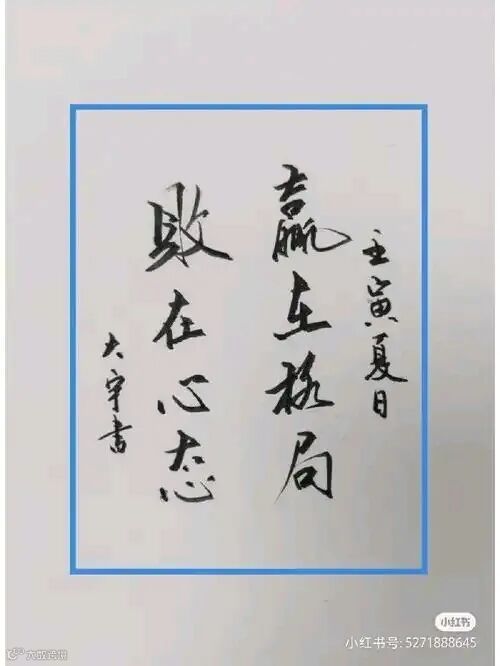 壬寅夏日
赢在格局
败在心态
大宇书
小红书
小红书号: 5271888645